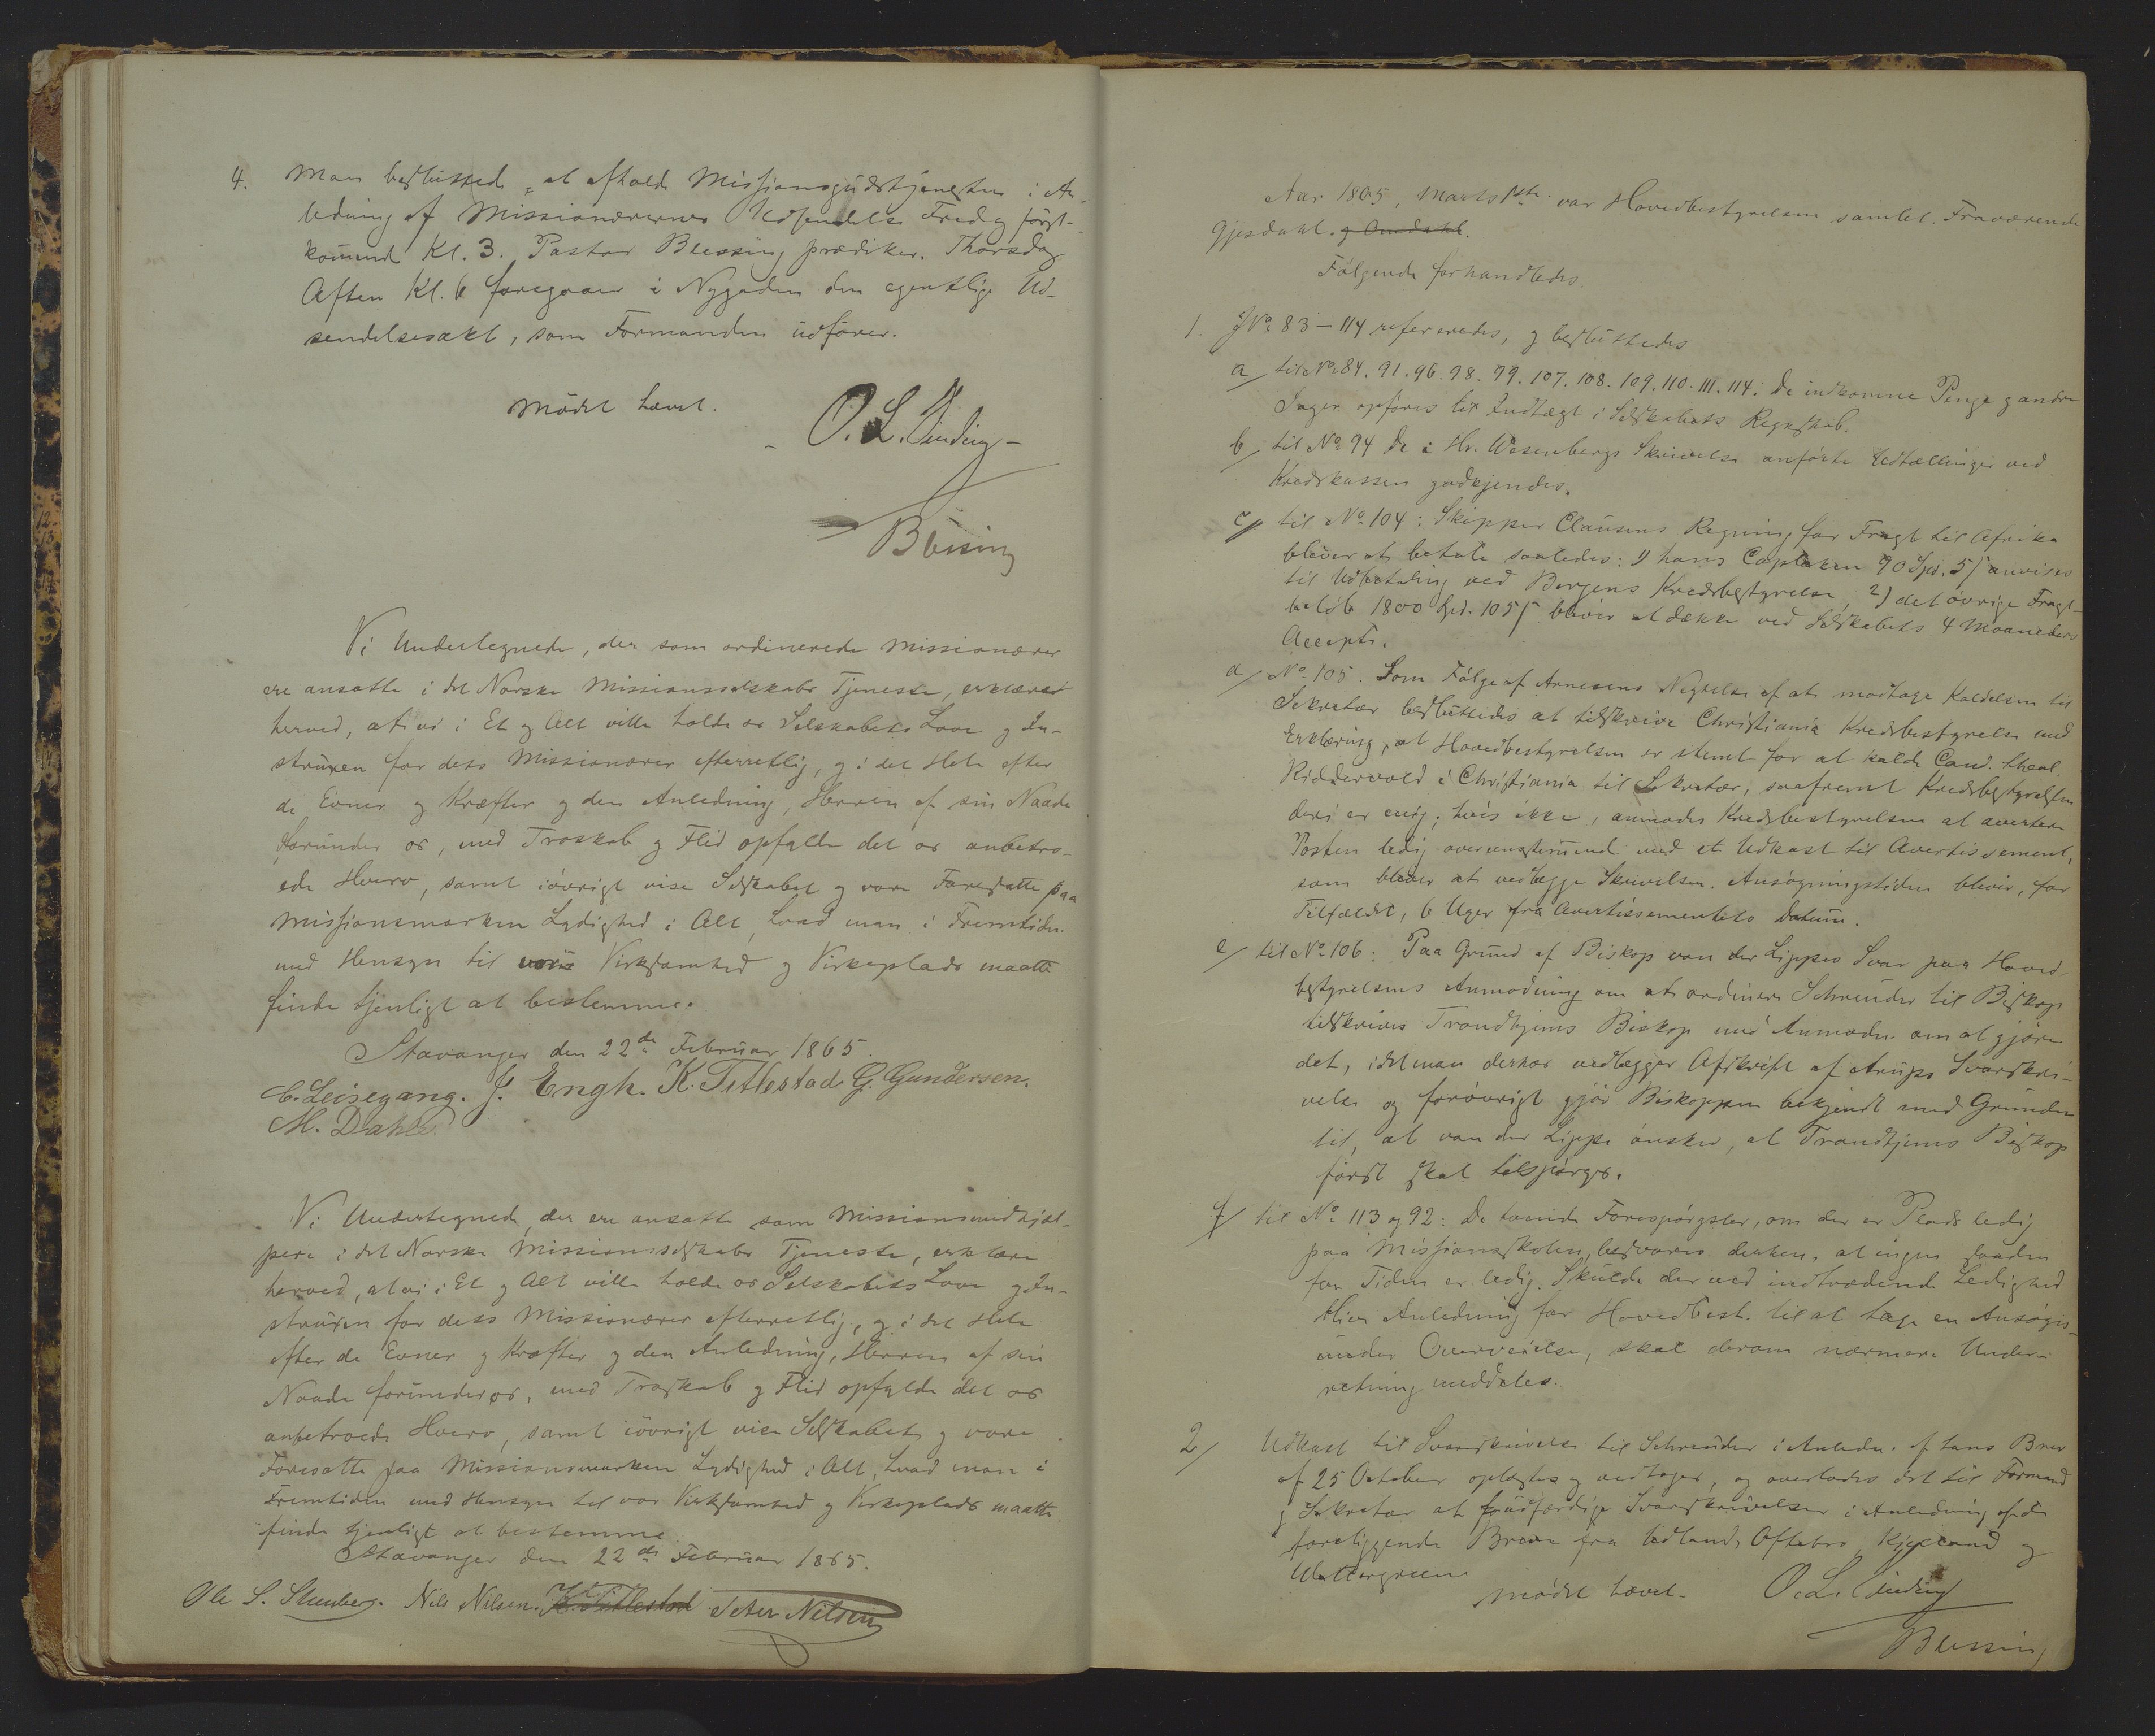 4. Man besluttede, at afholde Missionsgudstjenesten i An-
ledning af Missionærernes Udsendelse Fredag först-
kommend Kl. 3. Pastor Blessing prædiker. Thorsdag
Aften Kl. 6 foregaaer i Nygaden den egentlige Ud-
sendelsesakt, som Formanden udfører.
Mödet hævet.
O. L. Sinding
Blessing
Vi Undertegnede, der som ordinerede Missionærer
ere ansatte i det Norske Missionsselskabs Tjeneste, erklære
herved, at vi i Et og Alt ville holde os Selskabets Love og In-
struxen for dets Missionærer efterretlig, og i det Hele efter
de Evner og Kræfter og den Anledning, Herren af sin Naade
forunder os, med Troskab og Flid opfylde det os anbetro-
ede Hverv, samt iövrigt vise Selskabet og vore Foresatte paa
Missionsmarken Lydighed i Alt, hvad man i Fremtiden
med Hensyn til vor Virksomhed og Virkeplads maatte
finde tjenligt at bestemme.
Stavanger den 22de Februar 1865.
C. Leisegang. J. Engh. K. Titlestad G. Gundersen.
M. Dahle
Vi Undertegnede, der ere ansatte som Missionsmedhjæl-
pere i det Norske Missionsselskabs Tjeneste, erklære
herved, at vi i Et og Alt ville holde os Selskabets Love og In-
struxen for dets Missionærer efterretlig, og i det Hele
efter de Evner og Kræfter og den Anledning, Herren af sin
Naade forunder os, med Troskab og Flid opfylde det os
anbetroede Hverv, samt iövrigt vise Selskabet og vore
Foresatte paa Missionsmarken Lydighed i Alt, hvad man i
Fremtiden med Hensyn til vor Virksomhed og Virkeplads maatte
finde tjenligt at bestemme.
Stavanger den 22de Februar 1865.
Ole S. Steenberg. Nils Nilsen. K. Titlestad Peter Nilsen
Aar 1865, Marts 1ste var Hovedbestyrelsen samlet. Fraværende
Gjesdahl. og Omdahl.
Fölgende forhandledes.
1. JNo 83-114 refereredes, og besluttedes
a/ til No 84. 91. 96. 98. 99. 107. 108. 109. 110. 111. 114. De indkomne Penge og andre
Sager opföres til Indtægt i Selskabets Regnskab.
b/ til No 94 De i Hr. Wesenbergs Skrivelse anförte Udtællinger ved
Kredskassen godkjendes.
c/ til No 104: Skipper Clausens Regning for Fragt til Afrika
bliver at betale saaledes: 1) hans Caplaken 90 Spd. 5 ß anvises
til Udbetaling ved Bergens Kredsbestyrelse, 2) det övrige Fragt-
belöb 1800 Spd. 105 ß bliver at dække ved Selskabets 4 Maaneders
Accept.
d/ No 105. Som Fölge af Arnesens Negtelse af at modtage Kaldelsen til
Sekretær besluttedes at tilskrive Christiania Kredsbestyrelse med
Erklæring, at Hovedbestyrelsen er stemt for at kalde Cand. theol.
Riddervold i Christiania til Sekretær, saafremt Kredsbestyrelsen
deri er enig; hvis ikke, anmodes Kredsbestyrelsen at avertere
Posten ledig overensstemmend med et Udkast til Avertissement,
som bliver at vedlægge Skrivelsen. Ansögningstiden bliver, for
Tilfældet, 6 Uger fra Avertissementets Datum.
e/ til No 106: Paa Grund af Biskop von der Lippes Svar paa Hoved-
bestyrelsens Anmodning om at ordinere Schreuder til Biskop
tilskrives Trondhjems Biskop med Anmodn. om at gjöre
det, idet man derhos vedlægger Afskrift af Arups Svarskri-
velse og forövrigt gjör Biskoppen bekjendt med Grunden
til, at von der Lippe önsker, at Trondhjems Biskop
först skal tilspörges.
f/ til No 113 og 92: De tvende Forespörgsler, om der er Plads ledig
paa Missionsskolen, besvares derhen, at ingen saadan
for Tiden er ledig. Skulde der ved indtrædende Ledighed
blive Anledning for Hovedbest. til at tage en Ansögn-
under Overveielse, skal derom nærmere Under-
retning meddeles.
2/ Udkast til Svarskrivelse til Schreuder i Anledn. af hans Brev
af 25 October oplæstes og vedtoges, og overlodes det til Formand
og Sekretær at udfærdige Svarskrivelser i Anledning af de
foreliggende Breve fra Udland, Oftebro, Kjelland og
Wettergreen.
Mödet hævet. O. L. Sinding
Blessing